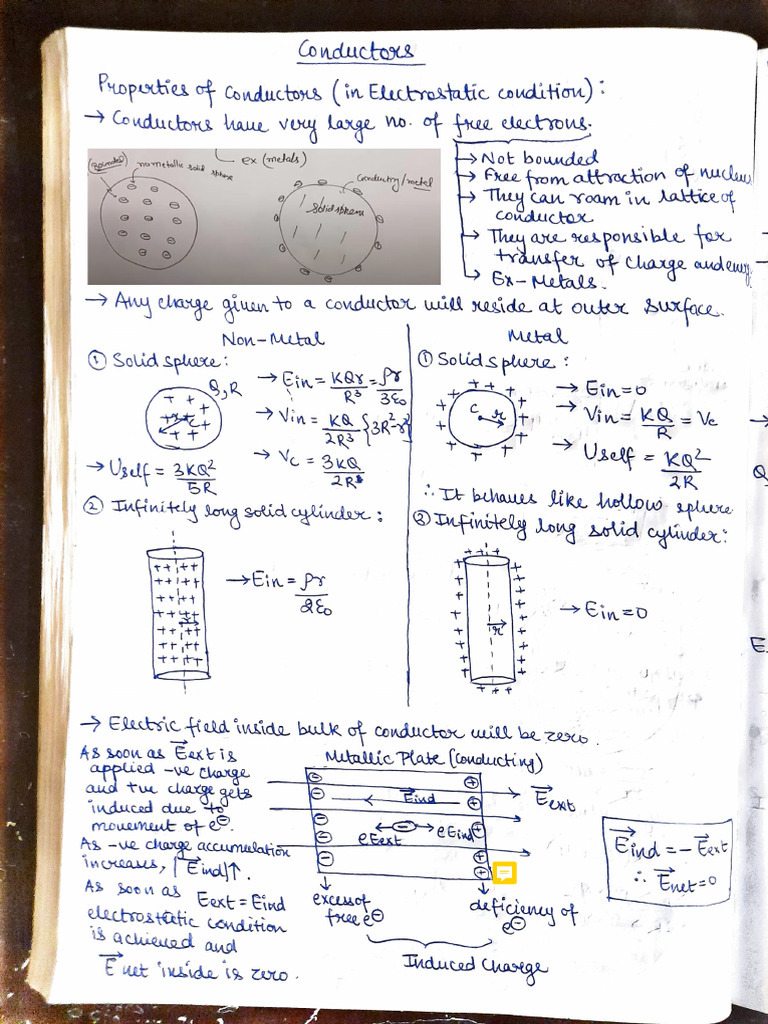 Conductors
Properties of conductors (in Electrostatic condition):
→ Conductors have very large no. of free electrons.
ex (metals)
non metallic solid
sphere
conducting/metal
solid sphere
→ Not bounded
→ Free from attraction of nucleus
→ They can roam in lattice of
conductor
→ They are responsible for
transfer of charge and energy
Ex- Metals.
→ Any charge given to a conductor will reside at outer surface.
Non-Metal
① Solid sphere:
Q, R
→ Ein = KQr/R³ = ρr/3ε₀
→ Vin = KQ/2R³ {3R²-r²}
→ Vc = 3KQ/2R
→ Uself = 3KQ²/5R
② Infinitely long solid cylinder:
→ Ein = ρr/2ε₀
Metal
① Solid sphere:
C r
→ Ein = 0
→ Vin = KQ/R = Vc
→ Uself = KQ²/2R
∴ It behaves like hollow sphere
② Infinitely long solid cylinder:
r
→ Ein = 0
→ Electric field inside bulk of conductor will be zero.
As soon as E⃗ext is
applied -ve charge
and +ve charge gets
induced due to
movement of e⊖.
As -ve charge accumulation
increases, |E⃗ind|↑.
As soon as Eext = Eind
electrostatic condition
is achieved and
E⃗net inside is zero.
Metallic Plate (conducting)
E⃗ind
E⃗ext
eEext
eEind
excess of
free e⊖
deficiency of
e⊖
Induced Charge
E⃗ind = -E⃗ext
∴ E⃗net = 0